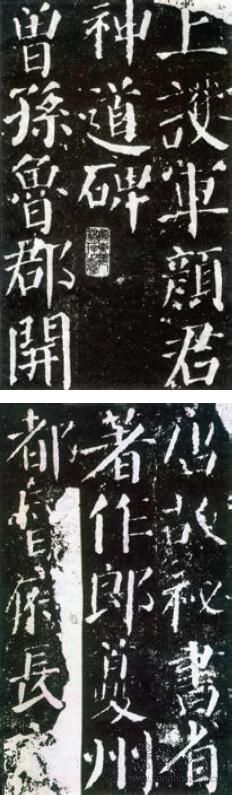 上護軍顏君
神道碑
曾孫魯郡開
唐故祕書省
著作郎夔州
都督府長